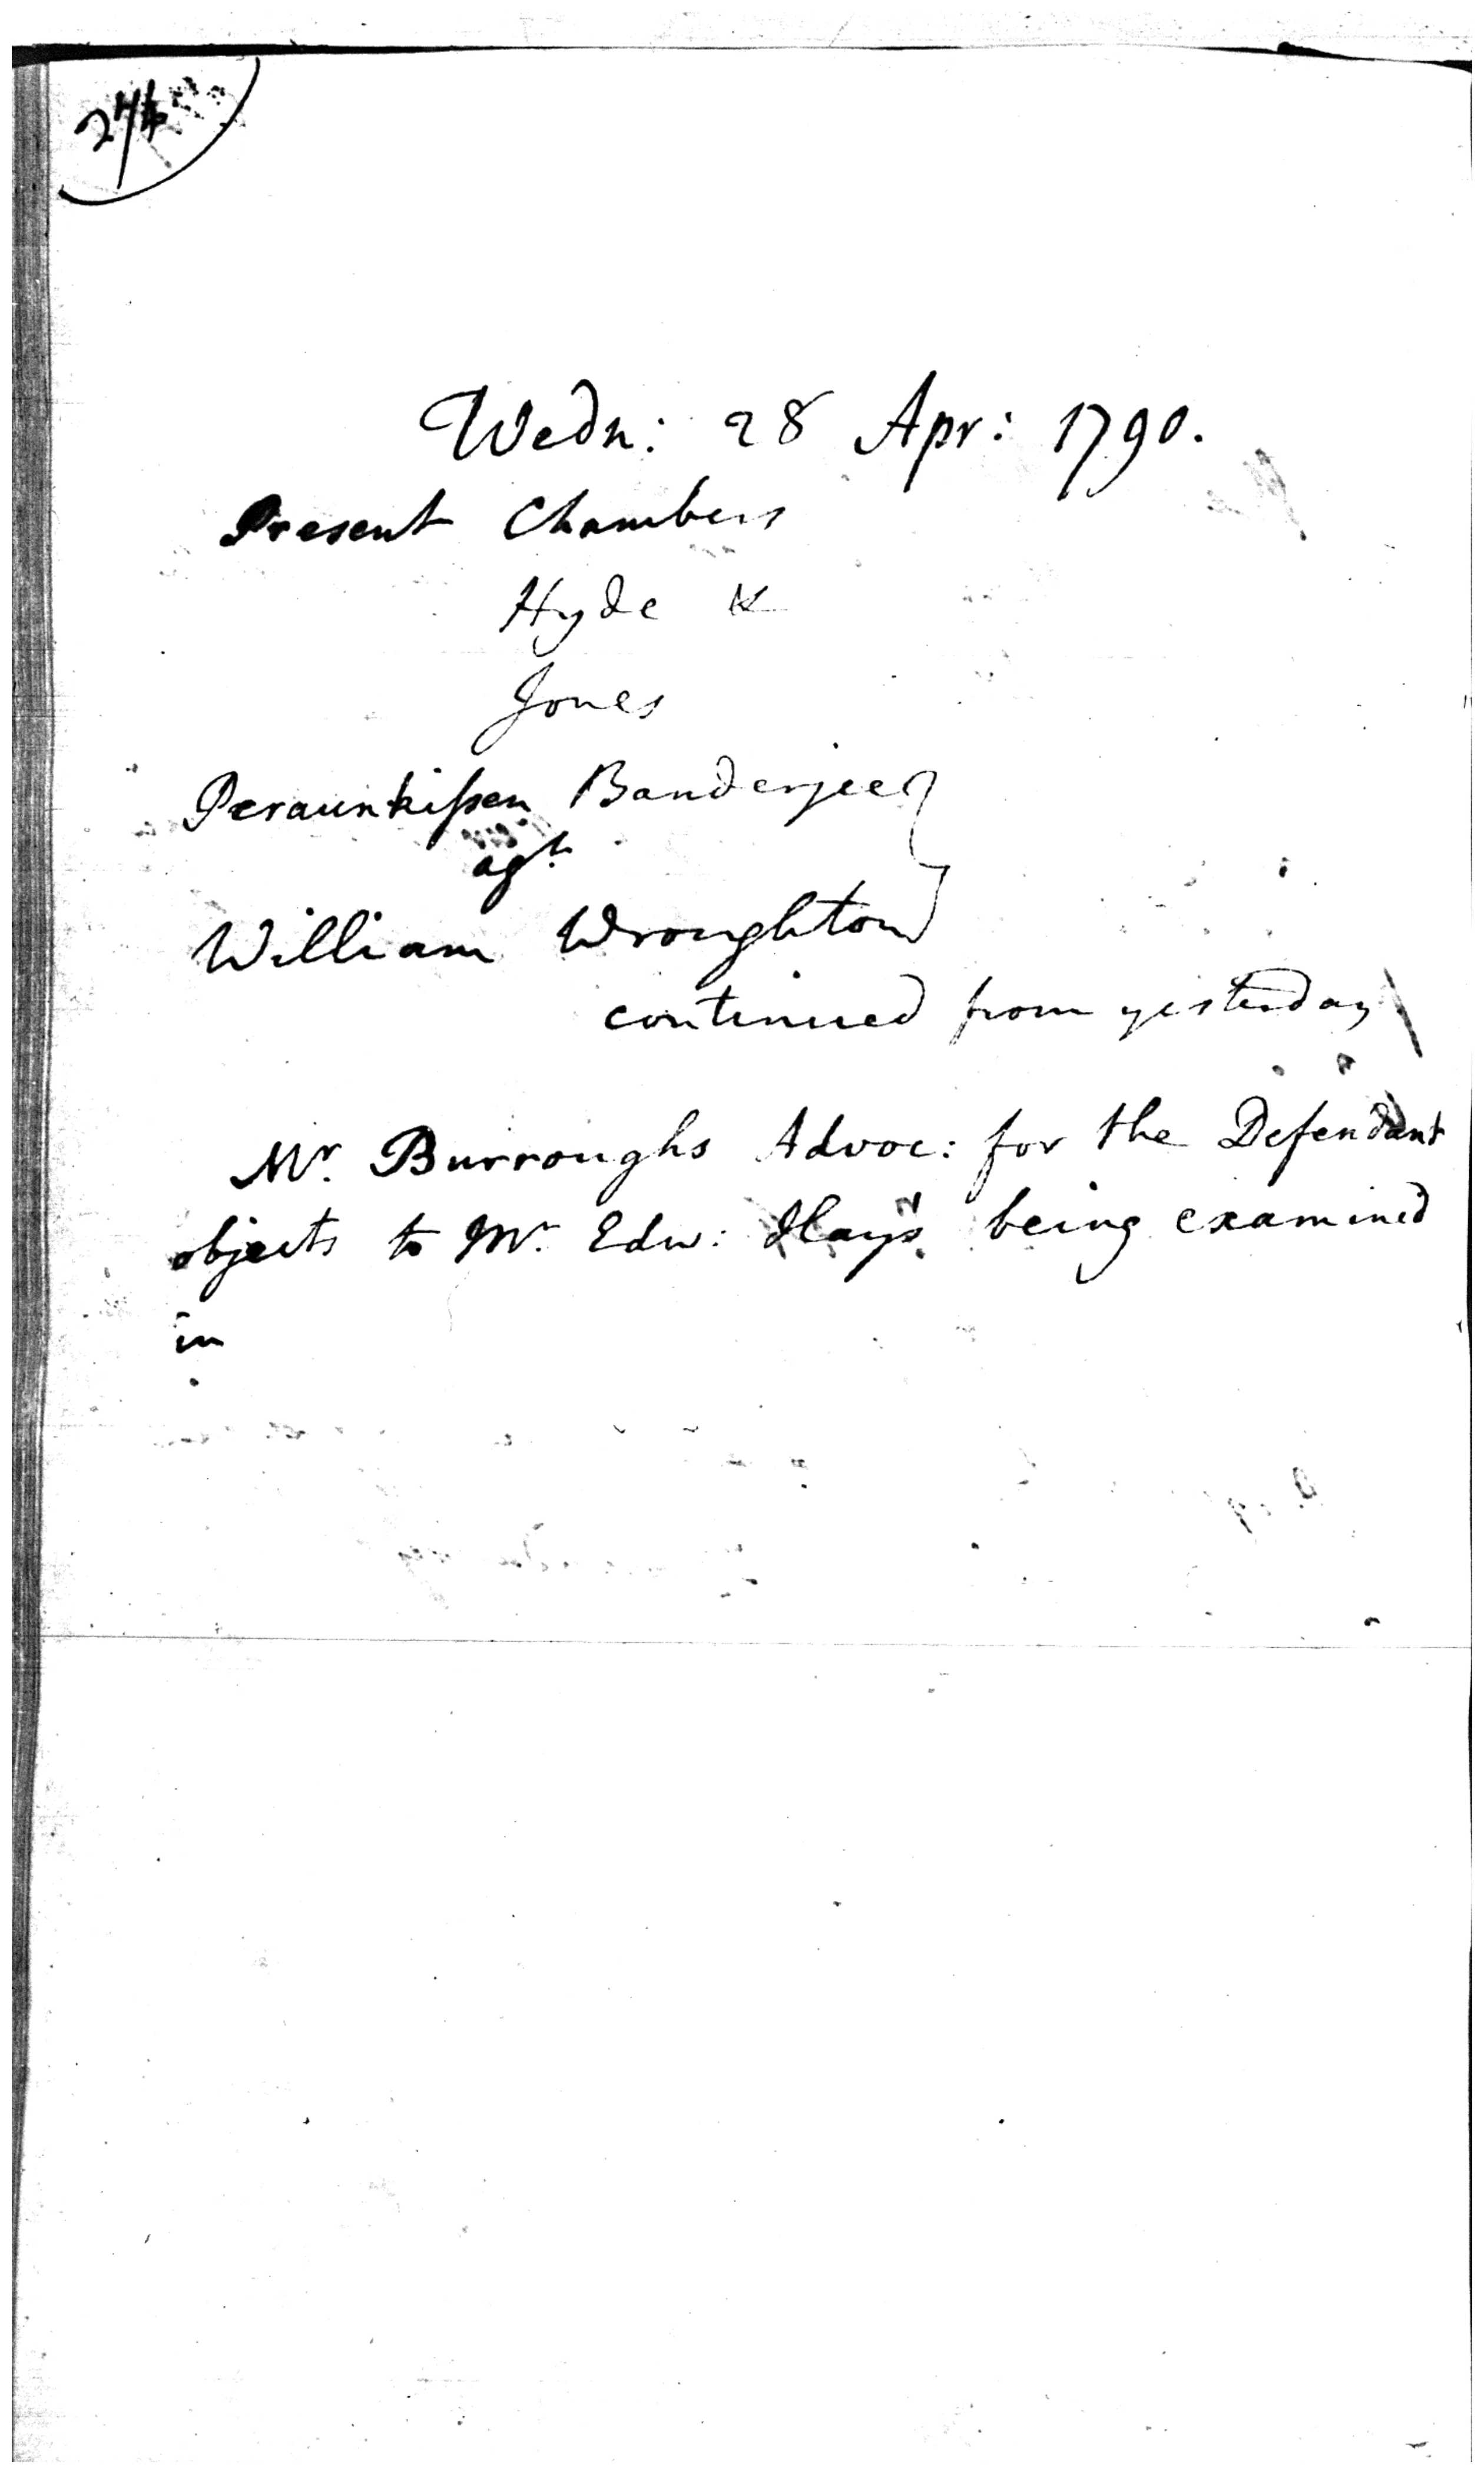 Wedn: 28 Apr: 1790.
Present Chambers
Hyde
Jones
Peraunkiſsen Banderjee
agt.
William Wroughton
continued from yesterday
Mr. Burroughs Advoc: for the Defendant
objects to Mr. Edw: Hay's being examined
in